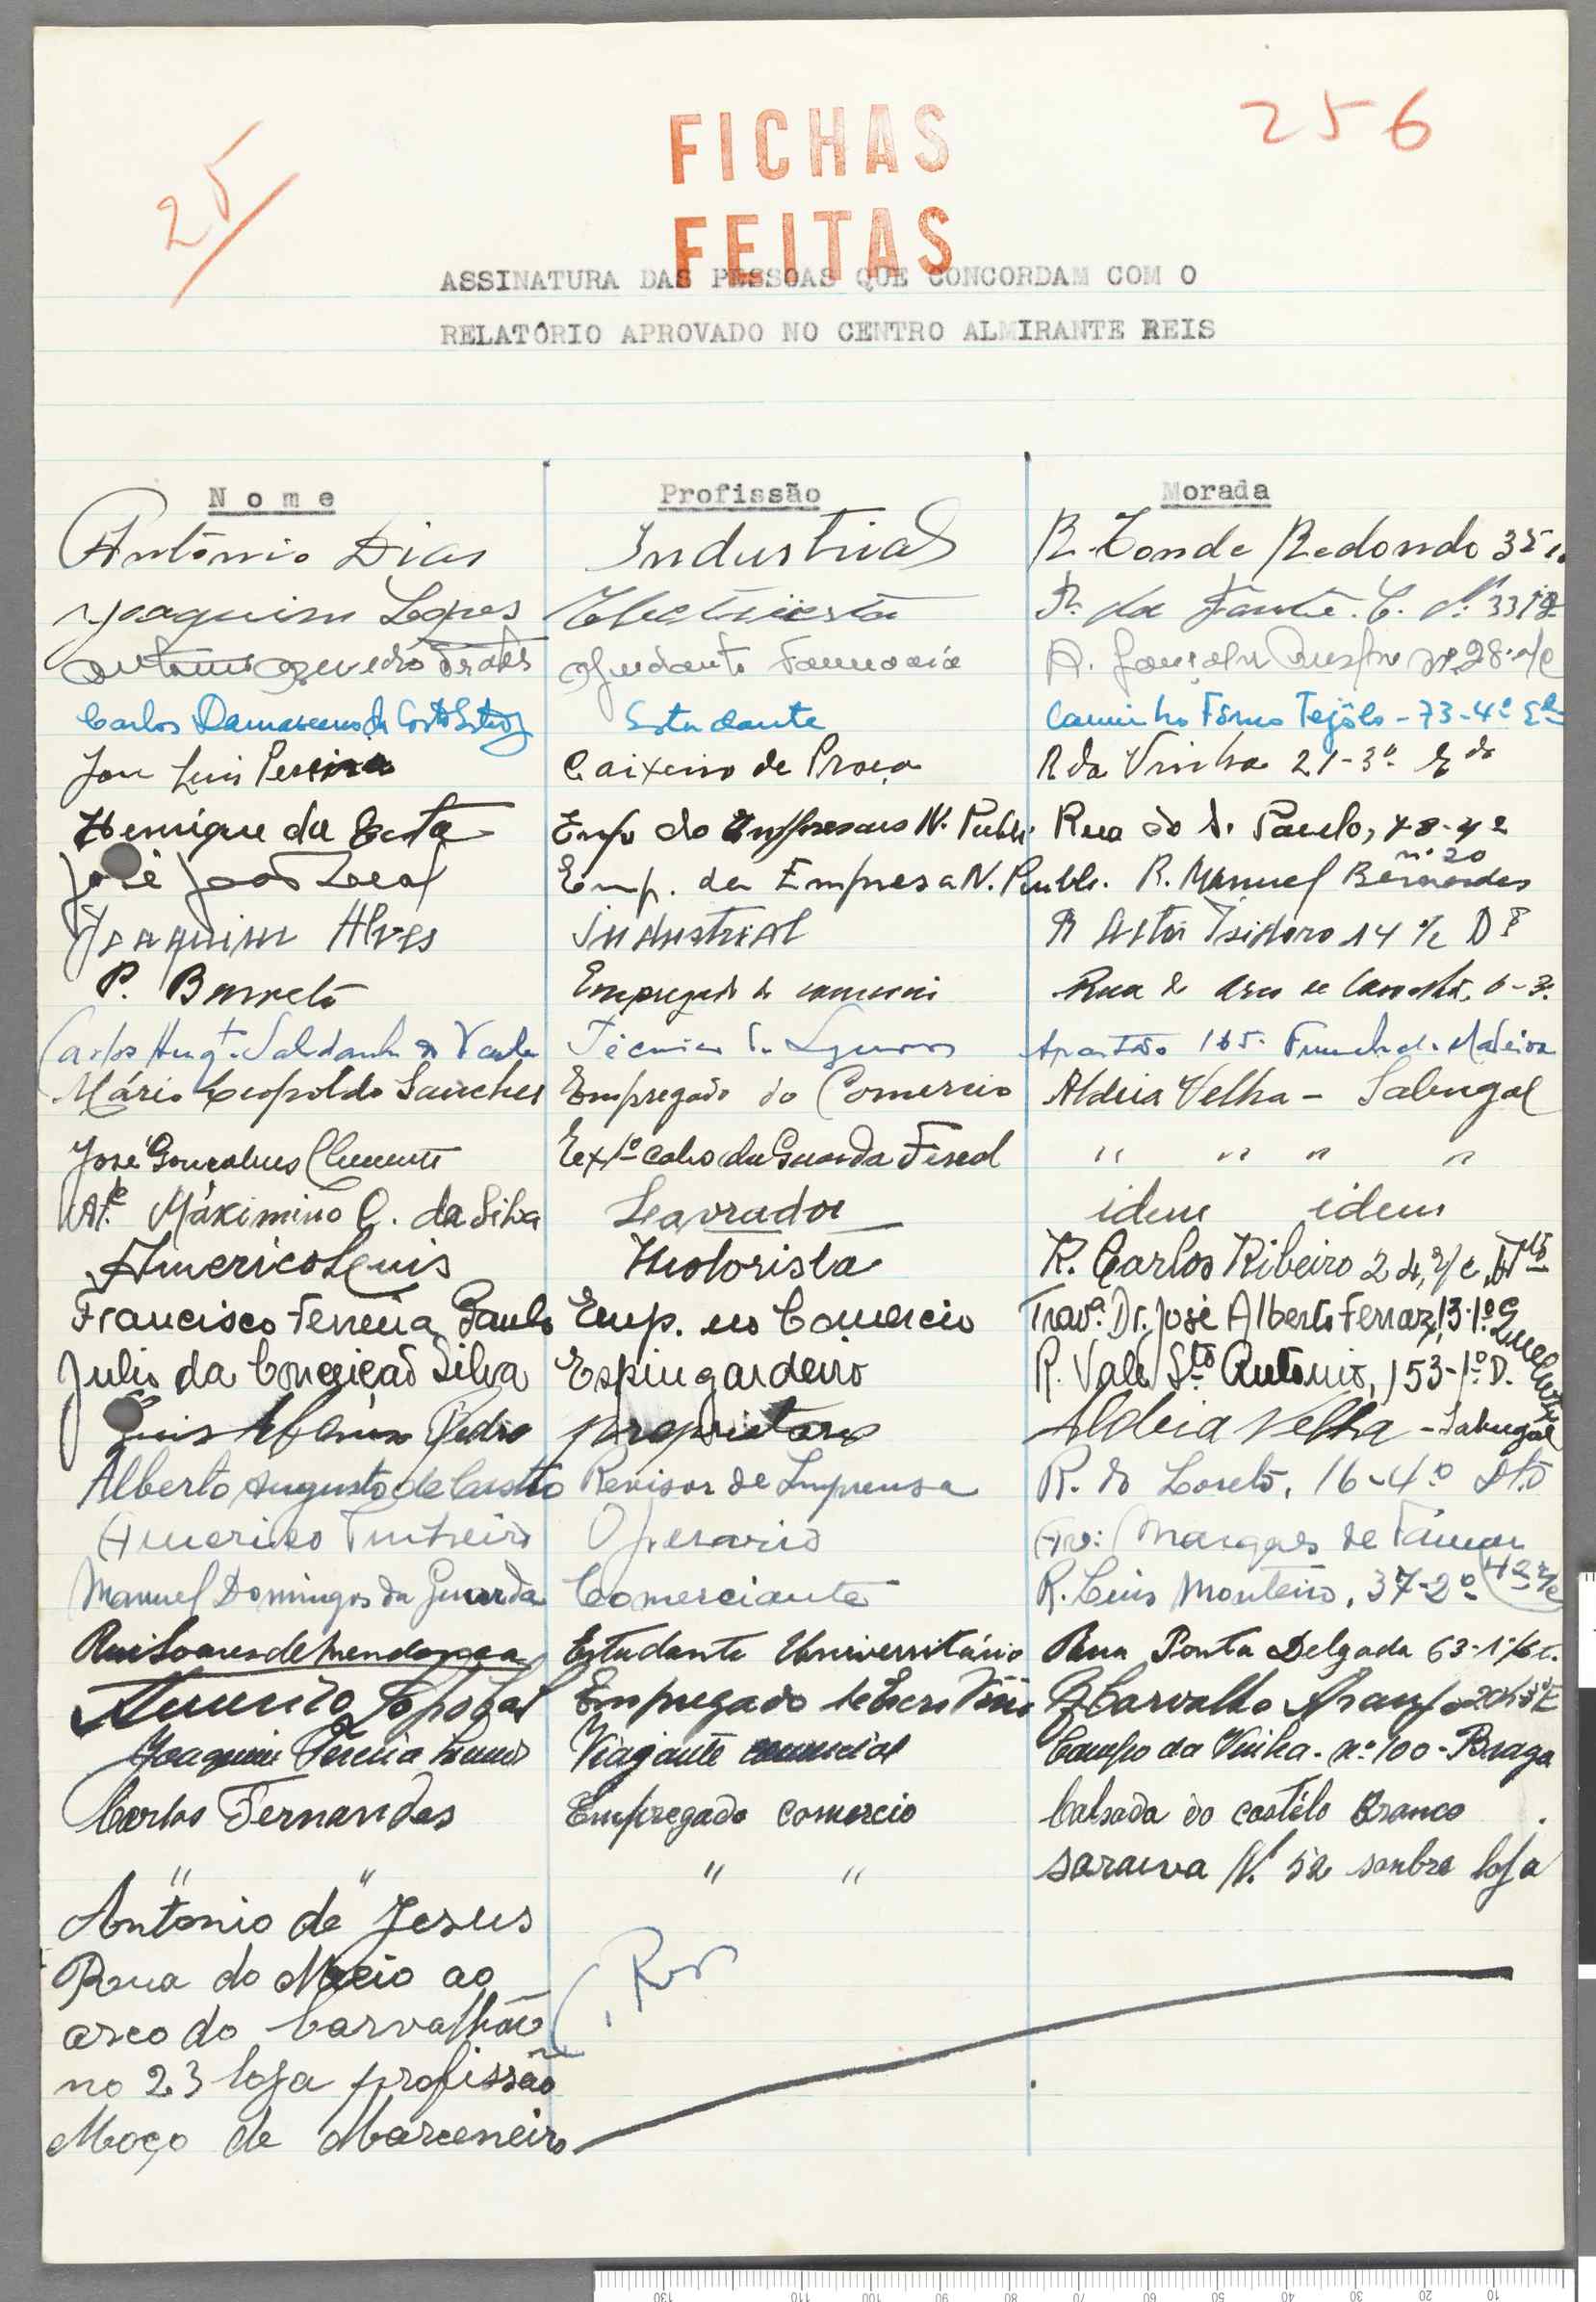 256
25
FICHAS
FEITAS
ASSINATURA DAS PESSOAS QUE CONCORDAM COM O
RELATÓRIO APROVADO NO CENTRO ALMIRANTE REIS
Nome Profissão Morada
António Dias Industrial R. Conde Redondo 35
Joaquim Lopes Electricista R. da
Azevedo Ajudante
Carlos Damasceno da Costa Estudante Caminho Forno Tejôlo - 73-4º
José Luis Pereira Caixeiro de Praça R. da Vinha 21-3º
Henrique da Costa Emp do N. Publi. Rua do S. Paulo,
José João Leal Emp. da Empresa N. Publi. R. Manuel Bernardes nº 20
Joaquim Alves Industrial R Actor Isidoro 14 r/c
P. Barreto Empregado Rua
Carlos Augt. Saldanha Técnico Apartado 165. Funchal. Madeira
Mário Leopoldo Sanches Empregado do Comercio Aldeia Velha - Sabugal
José Gonçalves Clemente Ex 1º cabo da Guarda Fiscal " " " "
Máximino C. da Silva Lavrador idem idem
Americo Luis Motorista R. Carlos Ribeiro 24, r/c
Francisco Ferreira Paulo Emp. no Comercio Trav.ª Dr. José Alberto Ferraz, 13-1º
Julio da Conceição Silva Espingardeiro R. Vale Stº António, 153-1º D.
Luis Pedro proprietario Aldeia Velha - Sabugal
Alberto Augusto de Castro Revisor de Imprensa R. do Loreto, 16-4º Dtº
Americo Operario Av: Marques de Tomar
Manuel Domingos da Guarda Comerciante R. Luis Monteiro, 37-2º
Rui Soares de Mendonça Estudante Universitário Rua Ponta Delgada 63-1º
Empregado de Carvalho Araujo
Joaquim Viajante comercial Campo da Vinha - nº 100 - Braga
Carlos Fernandes Empregado comercio Calsada do castélo Branco
" " " " saraiva N. 52 sonbre loja
Antonio de Jesus
Rua do Meio ao
arco do Carvalhão
no 23 loja profissão
Moço de Marceneiro